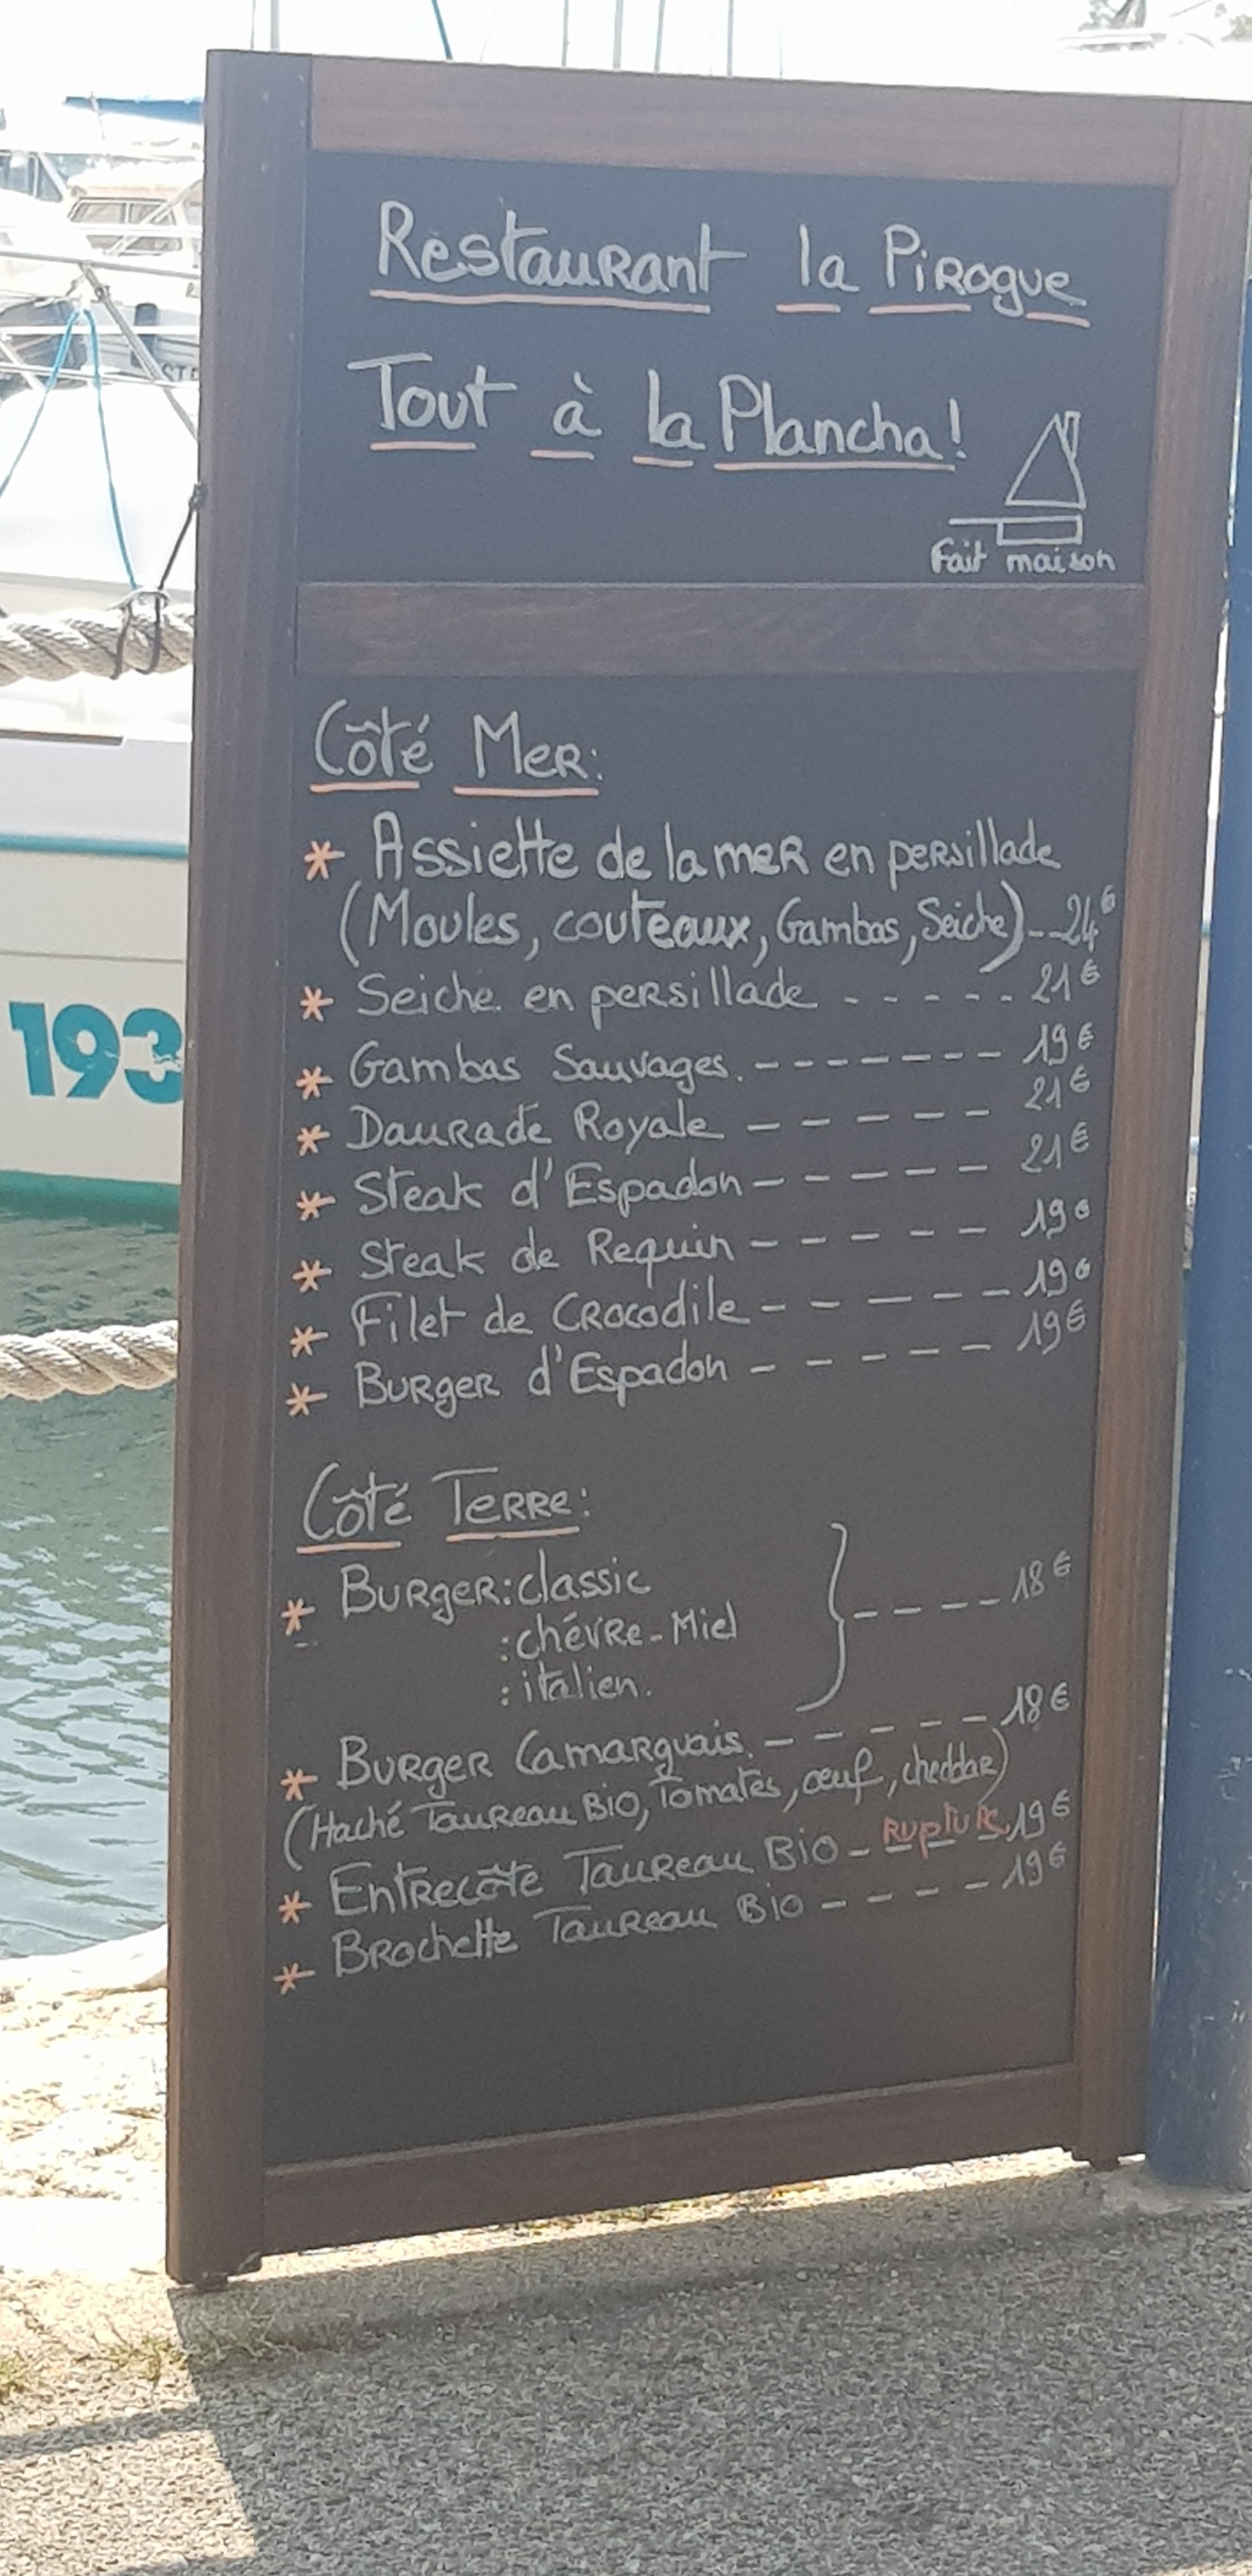 Restaurant la Pirogue
Tout à la Plancha!
Fait maison
Côté Mer:
* Assiette de la mer en persillade
(Moules, couteaux, Gambas, Seiche)--24€
* Seiche en persillade - - - - - 21€
* Gambas Sauvages. - - - - - - - 19€
* Daurade Royale - - - - - 21€
* Steak d'Espadon - - - - - 21€
* Steak de Requin - - - - - 19€
* Filet de Crocodile - - - - - 19€
* Burger d'Espadon - - - - - 19€
Côté Terre:
* Burger: classic
: chévre-Miel } - - - - 18€
: italien.
* Burger Camarguais. - - - - - 18€
(Haché Taureau Bio, Tomates, œuf, cheddar)
* Entrecôte Taureau Bio - Rupture - 19€
* Brochette Taureau Bio - - - - 19€
193